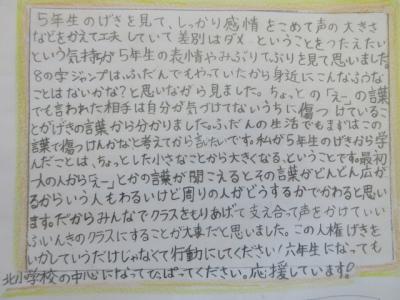 5年生のげきを見て、しっかり感情をこめて声の大きさ
などをかえて工夫していて差別はダメということをつたえたい
という気持が5年生の表情やみぶりてぶりを見て思いました。
8の字ジャンプは、ふだんでもやっていたから身近にこんなふうな
ことはないかな?と思いながら見ました。ちょっとの「えー」の言葉
でも言われた相手は自分が気づけてないうちに傷つけているこ
とがげきの言葉から分かりました。ふだんの生活でもまずはこの
言葉で傷つけんかなと考えてから言いたいです。私が5年生のげきから学
んだことは、ちょっとした小さなことから大きくなる、ということです。最初
一人の人から「えー」とかの言葉が聞こえるとその言葉がどんどん広が
るからいう人もわるいけど周りの人がどうするかでかわると思い
ます。だからみんなでクラスをもりあげて支え合って声をかけていい
ふいんきのクラスにすることが大事だと思いました。この人権げきを
いかしていうだけじゃなくて行動にしてください!六年生になっても
北小学校の中心になってひっぱってください。応援しています!